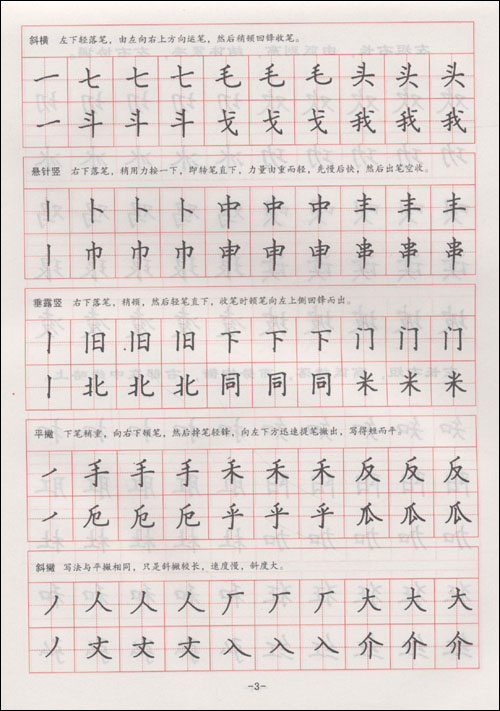 斜横 左下轻落笔，由左向右上方向运笔，然后稍顿回锋收笔。
一 七 七 七 毛 毛 毛 头 头 头
一 斗 斗 斗 戈 戈 戈 我 我 我
悬针竖 右下落笔，稍用力按一下，即转笔直下，力量由重而轻，先慢后快，然后出笔空收。
丨 卜 卜 卜 中 中 中 丰 丰 丰
丨 巾 巾 巾 申 申 申 串 串 串
垂露竖 右下落笔，稍顿，然后轻笔直下，收笔时顿笔向左上侧回锋而出。
丨 旧 旧 旧 下 下 下 门 门 门
丨 北 北 北 同 同 同 米 米 米
平撇 下笔稍重，向右下顿笔，然后转笔轻锋，向左下方迅速提笔撇出，写得短而平
丿 手 手 手 禾 禾 禾 反 反 反
丿 厄 厄 厄 乎 乎 乎 瓜 瓜 瓜
斜撇 写法与平撇相同，只是斜撇较长，速度慢，斜度大。
丿 人 人 人 厂 厂 厂 大 大 大
丿 丈 丈 丈 入 入 入 介 介 介
-3-